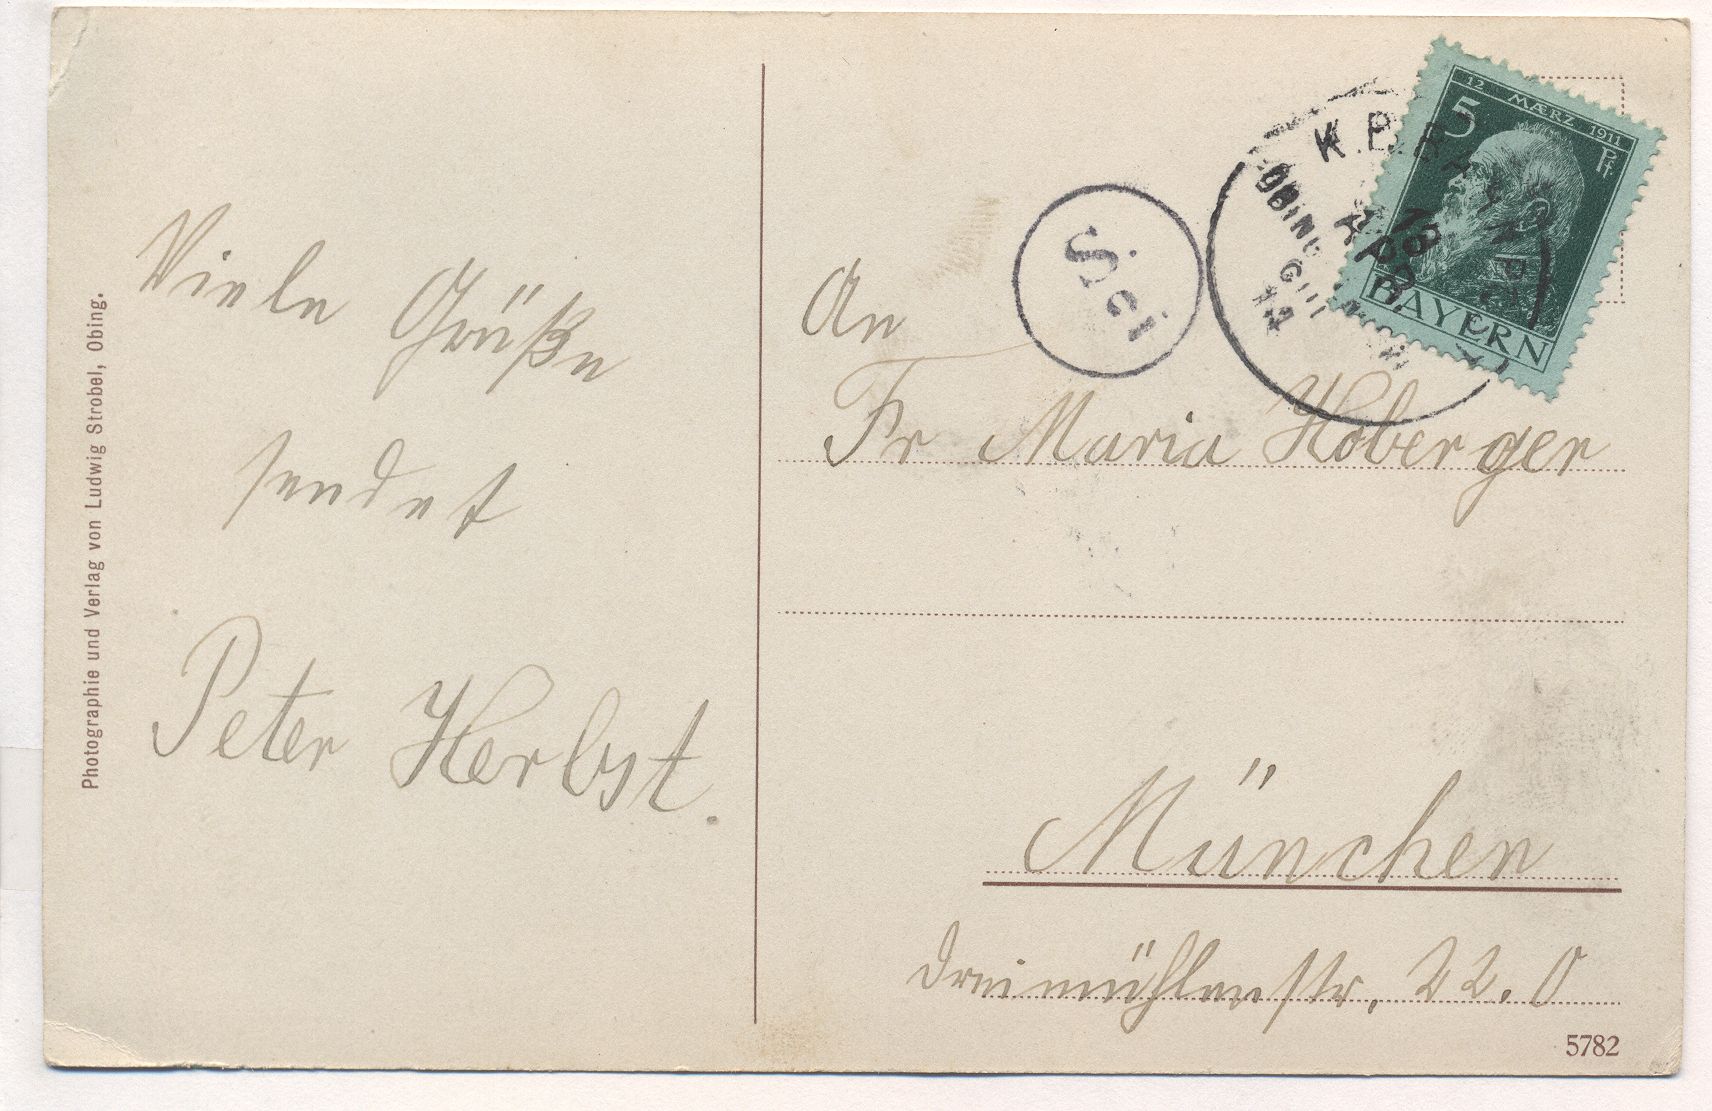 Photographie und Verlag von Ludwig Strobel, Obing.
Viele Grüße
sendet
Peter Herbst.
12 MÆRZ 1911
5 Pf.
BAYERN
K.B.BAYR.
18
APR.
OBING
An
Fr Maria Hoberger
München
Dreimühlenstr. 22. 0
5782